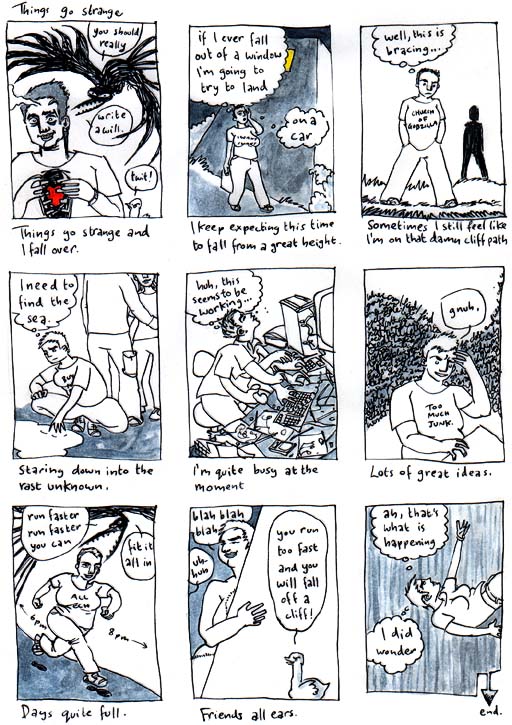 Things go strange
you should
really
write
a will.
twit!
Things go strange and
I fall over.
if I ever fall
out of a window
I'm going to
try to land
on a
car
I keep expecting this time
to fall from a great height.
well, this is
bracing...
CHURCH
OF
GODZILLA
Sometimes I still feel like
I'm on that damn cliff path
I need to
find the
sea.
Staring down into the
vast unknown.
huh, this
seems to be
working...
I'm quite busy at the
moment
gnuh.
TOO
MUCH
JUNK.
Lots of great ideas.
run faster
run faster
you can
fit it
all in
ALL
6pm
8pm
Days quite full.
blah blah
blah
uh-
huh
you run
too fast
and you
will fall
off a
cliff!
Friends all ears.
ah, that's
what is
happening
I did
wonder
end.